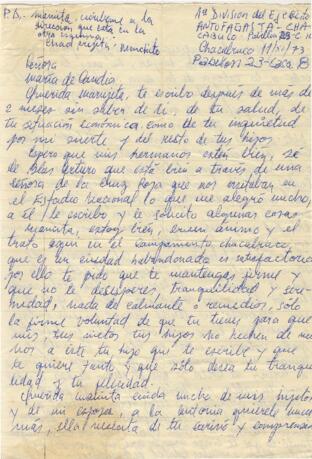 P.D. mamita, escríbeme a la
dirección que está en la
otra esquina.
1ª División del Ejército
ANTOFAGASTA - CHA-
CABUCO
Chacabuco 11/XI/73
Pabellón 23 - Casa 8
Señora
María de Candia
Querida Mamita, te escribo después de mas de
2 meses sin saber de ti, de tu salud, de
tu situación económica, como de tu inquietud
por mi suerte y del resto de tus hijos
Espero que mis hermanos estén bien, sé
de Blas Arturo que está bien a través de una
señora de la Cruz Roja que nos visitaba en
el Estadio Nacional lo que me alegró mucho,
a él le escribo y le solicito algunas cosas
Mamita, estoy bien, buen ánimo y el
trato aquí en el campamento chacabuco,
que es una ciudad abandonada es satisfactorio
por ello te pido que te mantengas firme y
que no te desesperes, tranquilidad y sere-
nidad, nada de calmante o remedios, solo
la firme voluntad de que tu tienes para que
mis, tus nietos tus hijos no hechen de me-
nos a este tu hijo que te escribe y que
te quiere tanto y que sólo desea tu tranqui-
lidad y tu felicidad.
Querida mamita cuida mucho de mis hijitos
y de mi esposa, a la Antonia quierela mucho
mas, ella necesita de tu cariño y comprensión